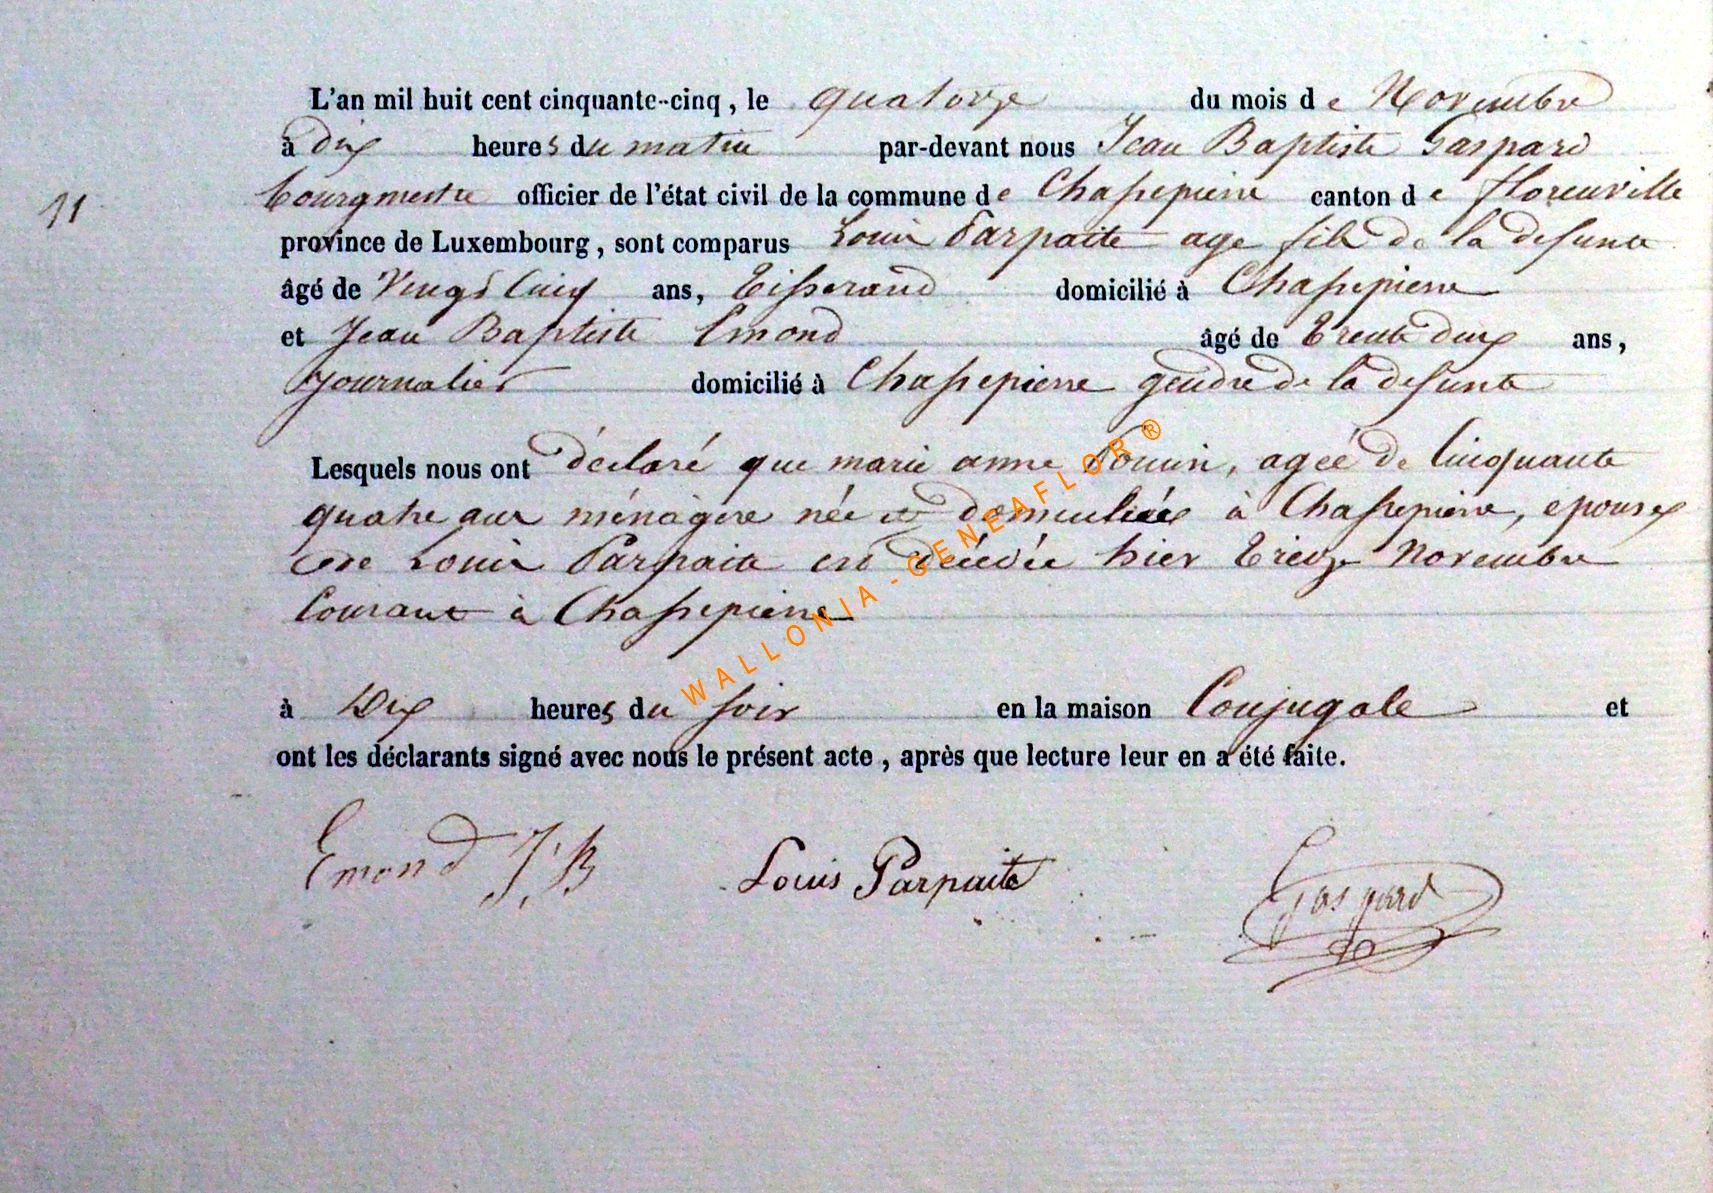 L'an mil huit cent cinquante-cinq, le quatorze du mois de Novembre
à dix heures du matin par-devant nous Jean Baptiste Gaspard
11 bourgmestre officier de l'état civil de la commune de Chassepierre canton de florenville
province de Luxembourg, sont comparus Louis Parpaite age fils de la defunte
âgé de Vingt Cinq ans, Tisserand domicilié à Chassepierre
et Jean Baptiste Emond âgé de Trente deux ans,
journalier domicilié à Chassepierre gendre de la defunte
Lesquels nous ont déclaré que marie anne, agée de Cinquante
quatre ans ménagère née et domiciliée à Chassepierre, epouse
de Louis Parpaite est décédée hier Treize Novembre
Courant à Chassepierre
à Dix heures du soir en la maison Conjugale et
ont les déclarants signé avec nous le présent acte, après que lecture leur en a été faite.
Emond J,B Louis Parpaite Gaspard
WALLONIA - GENEAFLOR ®